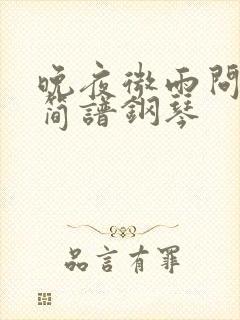 晚夜微雨問
簡譜鋼琴
品言有罪